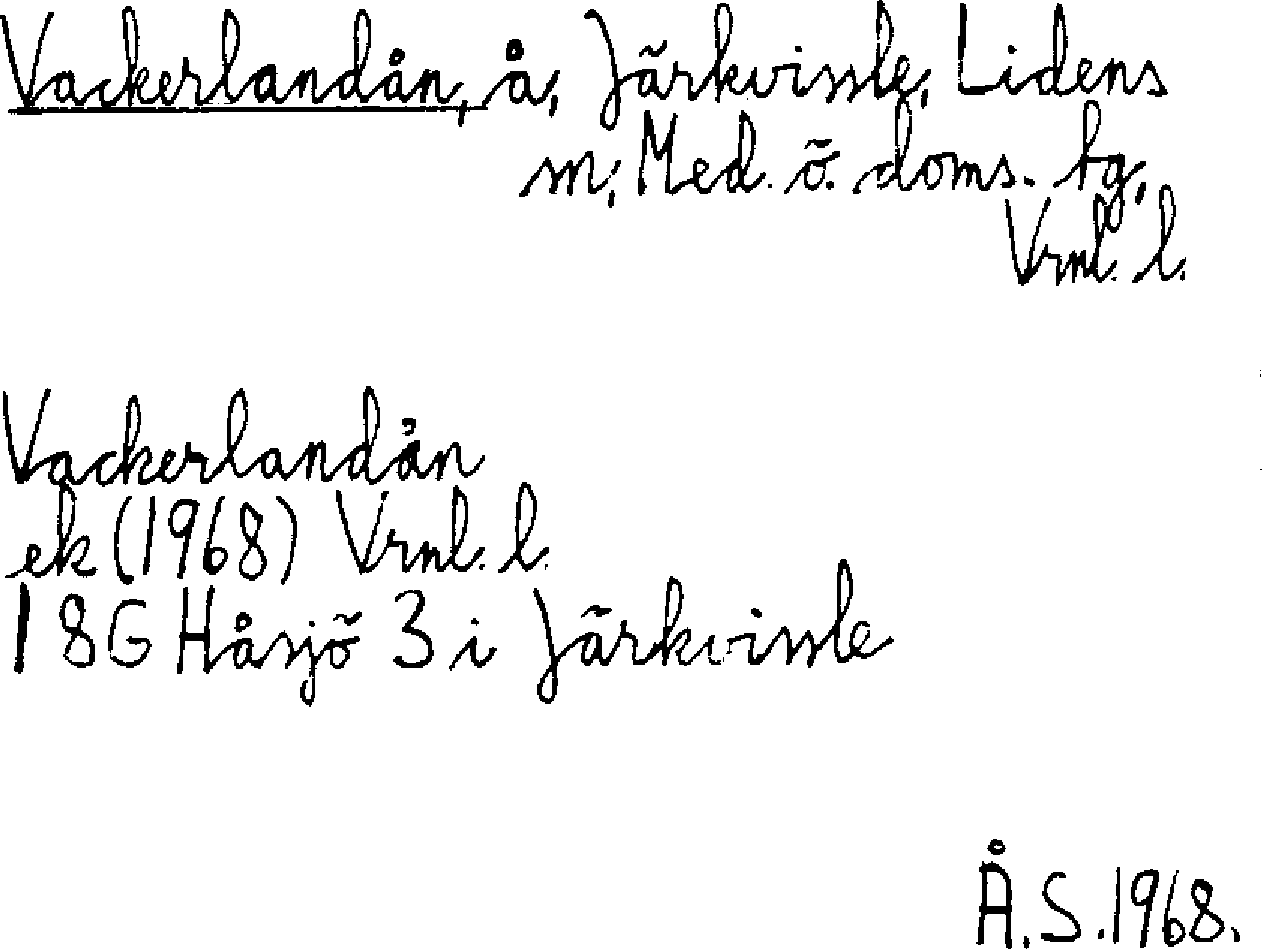 Vackerlandån, å, Järkvissle, Lidens
sn, Med. ö. doms. tg,
Vrnl. l.
Vackerlandån
ek (1968) Vrnl. l.
18G Håsjö 3 i Järkvissle
Å.S.1968.